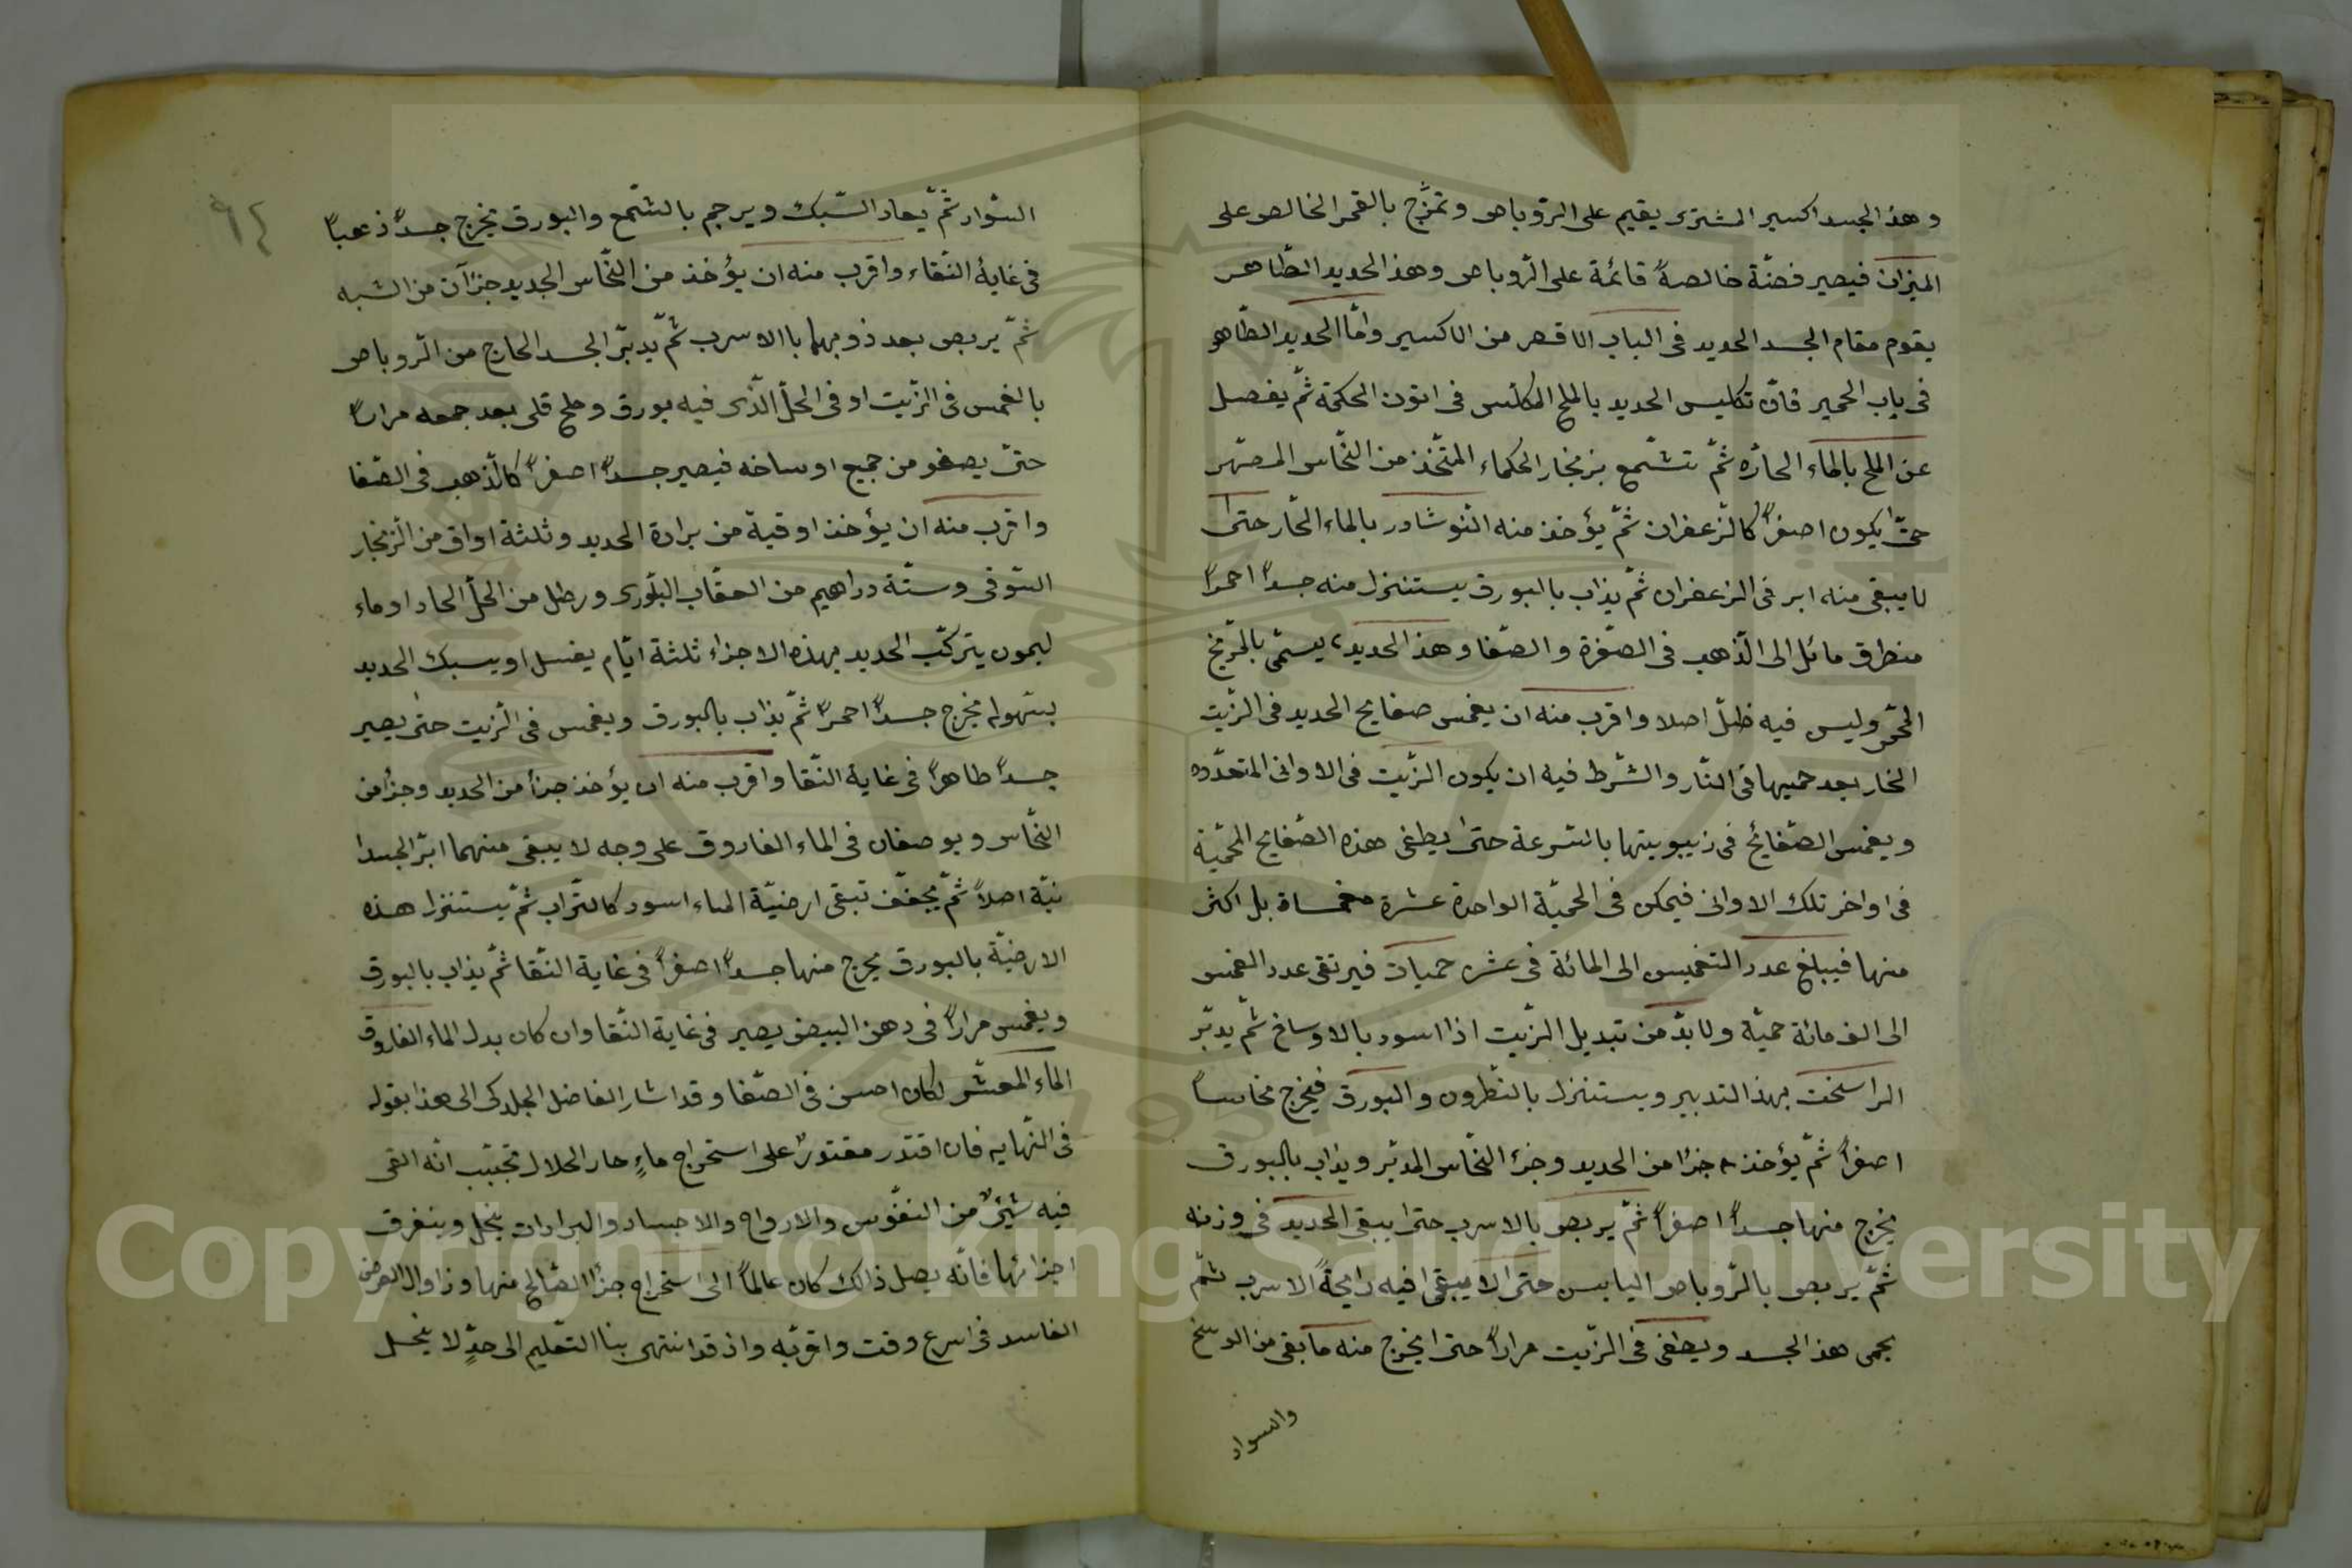 وهذ الجسد اكسير المشترى يقيم على الرّوباص وتمزّج بالقمر الخالص على
الميزان فيصير فضّة خالصةً قائمة على الرّوباص وهذ الحديد الطّاهر
يقوم مقام الجسد الحديد فى الباب الاقصر من الاكسير وامّا الحديد الطّاهر
فى باب الحمير فانّ تكليس الحديد بالملح المكلّس فى اتون الحكمة ثمّ يغصل
عن الملح بالماء الحارّه ثمّ تشّمع بزنجار الحكماء المتّخذ من النّحاس المصهّر
حتّى يكون اصفراً كالزّعفران ثمّ يؤخذ منه النّوشادر بالماء الحّار حتىّ
لا يبقى منه ابر فى الزعفران ثمّ يذاب بالبورق يستنزل منه جسداً احمراً
منطرق مائل الى الذّهب فى الصّفرة والصّفا وهذ الحديد يسمّى بالمّريخ
المحّمر وليس فيه ظلّ اصلا واقرب منه ان يغمس صفايح الحديد فى الزّيت
الحار بعد حميها فى النّار والشّرط فيه ان يكون الزّيت فى الاوانى المتعدّده
ويغمس الصّفايح فى زيبوبيتها بالسّرعة حتىّ يطفى هذه الصّفايح المحّمية
فى اواخر تلك الاوانى فيمكن فى الحميّة الواحدة عشرة مغمساة بل اكثر
منها فيبلغ عدد التغميس الى المائة فى عشر حميات فيرتقى عدد الغمس
الى الف مائة حميّة ولا بدّ من تبديل الزّيت اذا اسود بالاوساخ ثمّ يدبّر
الراسخت بهذ التدبير ويستنزل بالنّطرون والبورق فيخرج نحاساً
اصفراً ثمّ يؤخذ جزءا من الحديد وجزء النّحاس المدبّر ويذاب بالبورق
يخرج منها جسداً اصفراً ثمّ يربص بالاسرب حتىّ يبقى الحديد فى وزنه
ثمّ يربص بالرّوباص اليابس حتىّ لا يبقى فيه رايحةً الاسرب ثمّ
يحمى هذ الجسد ويطفى فى الزّيت مراراً حتىّ يخرج منه ما بقى من الوسخ
والسواد
٩٤
السّواد ثمّ يعاد السّبك ويرجم بالشّمع والبورق يخرج جسداً ذهباً
فى غاية النّقاء واقرب منه ان يؤخذ من النّحاس الجديد جزآن من الشبه
ثمّ يربص بعد ذوبهما باالاسرب ثمّ يدبّر الجسد الخارج من الرّوباص
بالغمس فى الزّيت او فى الخلّ الّذى فيه بورق وملح قلى بعد جمعه مراراً
حتىّ يصفو من جميع اوساخه فيصير جسداً اصفراً كالذّهب فى الصّفا
واقرب منه ان يؤخذ اوقية من برادة الحديد وثلثة اواق من الزنجار
السّوقى وستّة دراهيم من العقّاب البلّورى ورطل من الخلّ الحاد او ماء
ليمون يتركّب الحديد بهذه الاجزاء ثلثة ايّام يغسل او يسبك الحديد
بسّهوله يخرج جسداً احمراً ثمّ يذاب بالبورق ويغمس فى الزّيت حتىّ يصير
جسداً طاهراً فى غاية النّقا واقرب منه ان يؤخذ جزأ من الحديد وجزأ من
النّحاس ويوضعان فى الماء الفاروق على وجه لا يبقى منهما ابرّ الجسدا
نيّة اصلاً ثمّ يجفّف تبقى ارضيّة الماء اسود كالتّراب ثمّ يستنزل هذه
الارضيّة بالبورق يخرج منها جسداً اصفراً فى غاية النّقا ثمّ يذاب بالبورق
ويغمس مراراً فى دهن البيض يصير فى غاية النّقا وان كان بدل الماء الفاروق
الماء المعشّر لكان احسن فى الصّفا وقد اشار الفاضل الجلدكى الى هذا بقوله
فى النّهايه فان اقتدر مقتدرٌ على استخراج ماءٍ حار الحلال تجتبب انّه القى
فيه شيئٌ من النفّوس والارواح والاجساد والبرادات ينحل ويتفرق
اجزائها فانّه يصل ذالك كان عالماً الى استخراج جزأ الصّالح منها وزاوال العرضى
الفاسد فى اسرع وقت واقربّه واذ قد انتهى بنا التعّليم الى حدٍّ لا ينحل